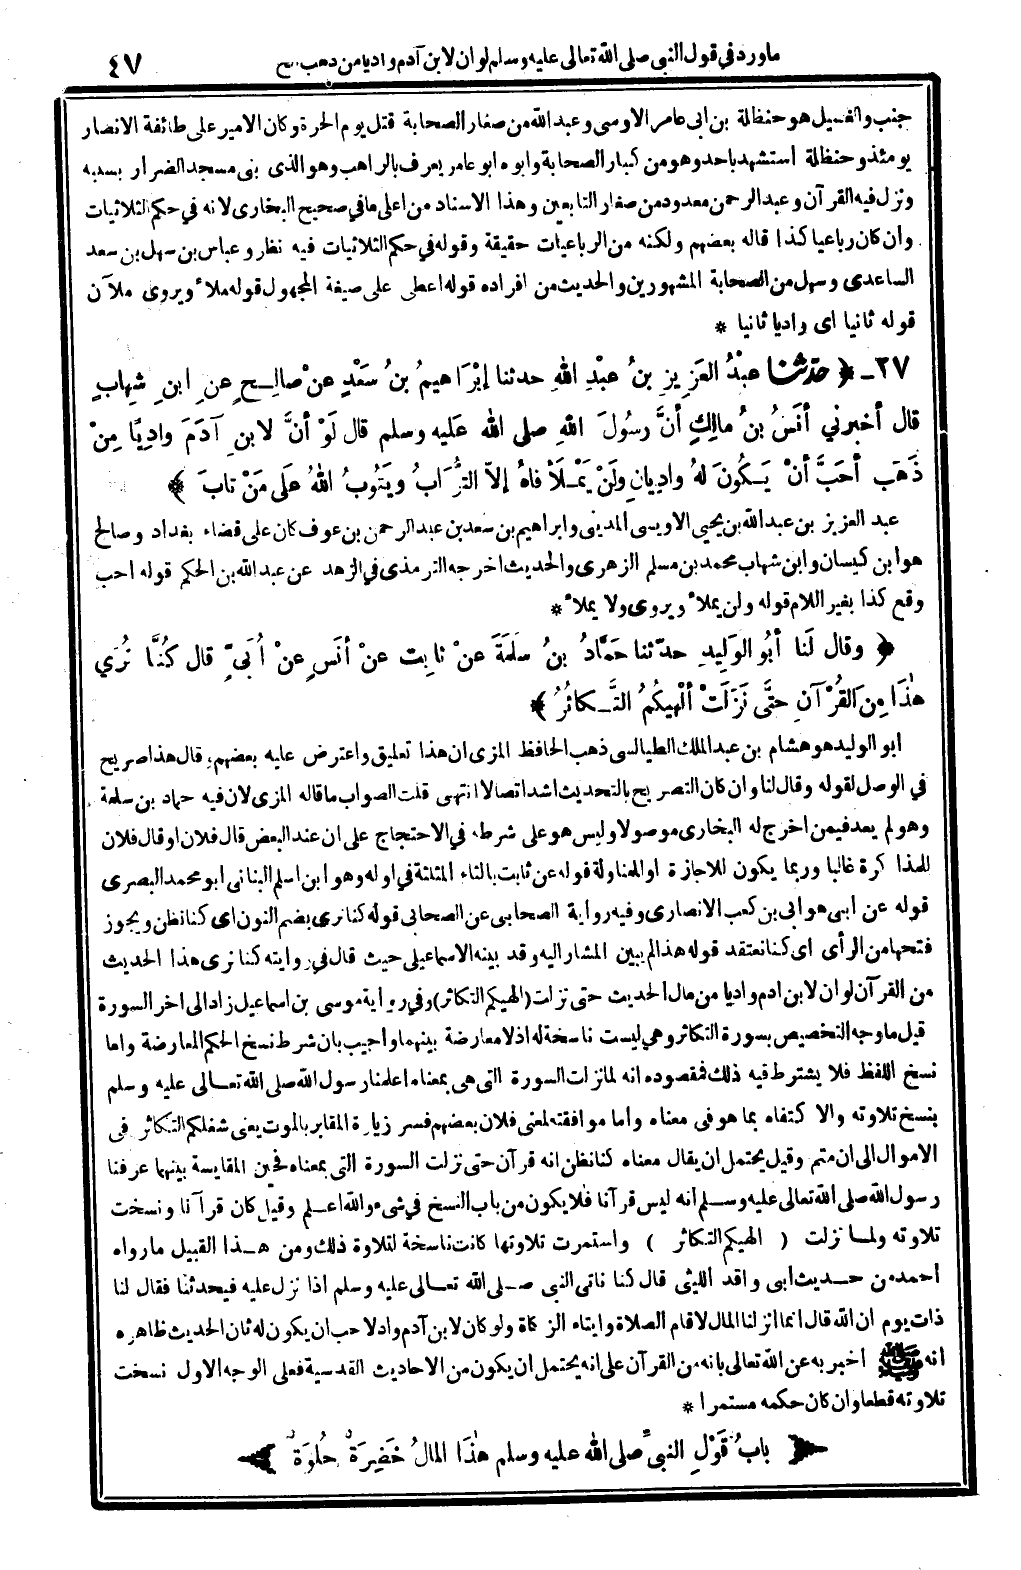 ماورد في قول النبي صلى الله تعالى عليه وسلم لوان لابن آدم واديا من ذهب الخ ٤٧
جنب والغسيل هو حنظلة بن ابى عامر الاوسى وعبدالله من صغار الصحابة قتل يوم الحرة وكان الامير على طائفة الانصار
يومئذ وحنظلة استشهد باحد وهو من كبار الصحابة وابوه ابو عامر يعرف بالراهب وهو الذى بنى مسجد الضرار بسببه
ونزل فيه القرآن وعبد الرحمن معدود من صغار التابعين وهذا الاسناد من اعلى ما في صحيح البخارى لانه في حكم الثلاثيات
وان كان رباعيا كذا قاله بعضهم ولكنه من الرباعيات حقيقة وقوله في حكم الثلاثيات فيه نظر وعباس بن سهل بن سعد
الساعدى وسهل من الصحابة المشهورين والحديث من افراده قوله اعطى على صيغة المجهول قوله ملأ ويروى ملآن
قوله ثانيا اى واديا ثانيا *
٢٧ـ ﴿ حدّثنا عبْدُ العَزِيزِ بنُ عبدِ اللهِ حدثنا إبْرَاهيمُ بنُ سَعْدٍ عنْ صالِحٍ عنِ ابنِ شِهابٍ
قال أخبرني أنَسُ بنُ مالِكٍ أنَّ رسُولَ اللهِ صلى الله عَليه وسلم قال لَوْ أنَّ لابنِ آدَمَ وادِيًا مِنْ
ذَهَبٍ أحَبَّ أنْ يَكُونَ لهُ وادِيانِ ولَنْ يَمْلَأَ فاهُ إلاّ التُّرَابُ ويَتُوبُ اللهُ علَى مَنْ تابَ * ﴾
عبد العزيز بن عبدالله بن يحيى الاويسى المدينى وابراهيم بن سعد بن عبدالرحمن بن عوف كان على قضاء بغداد وصالح
هو ابن كيسان وابن شهاب محمد بن مسلم الزهرى والحديث اخرجه الترمذى في الزهد عن عبدالله بن الحكم قوله احب
وقع كذا بغير اللام قوله ولن يملأ ويروى ولا يملأ *
﴿ وقال لَنا أبُو الوَلِيدِ حدّثنا حَمّادُ بنُ سلَمَةَ عنْ ثابِتٍ عنْ أنَسٍ عنْ أُبَيٍّ قال كُنَّا نُرَي
هٰذَا مِنَ القُرْآنِ حتَّى نَزَلَتْ ألْهيكُمُ التَّكاثُرُ * ﴾
ابو الوليد هو هشام بن عبدالملك الطيالسى ذهب الحافظ المزى ان هذا تعليق واعترض عليه بعضهم، قال هذا صريح
في الوصل لقوله وقال لنا وان كان التصريح بالتحديث اشد اتصالا انتهى قلت الصواب ما قاله المزى لان فيه حماد بن سلمة
وهو لم يعد فيمن اخرج له البخارى موصولا وليس هو على شرطه في الاحتجاج على ان عند البعض قال فلان او قال فلان
لهذا كرة غالبا وربما يكون للاجازة او للمناولة قوله عن ثابت بالثاء المثلثة في اوله وهو ابن اسلم البنانى ابو محمد البصرى
قوله عن ابى هو ابى بن كعب الانصارى وفيه رواية الصحابى عن الصحابى قوله كنا نرى بضم النون اى كنا نظن ويجوز
فتحها من الرأى اى كنا نعتقد قوله هذا لم يبين المشار اليه وقد بينه الاسماعيلى حيث قال في روايته كنا نرى هذا الحديث
من القرآن لو ان لابن ادم واديا من مال الحديث حتى نزلت (الهيكم التكاثر) وفي رواية موسى بن اسماعيل زاد الى اخر السورة
قيل ما وجه التخصيص بسورة التكاثر وهي ليست ناسخة له اذ لا معارضة بينهما واجيب بان شرط نسخ الحكم المعارضة واما
نسخ اللفظ فلا يشترط فيه ذلك فمقصوده انه لما نزلت السورة التى هى بمعناه اعلمنا رسول الله صلى الله تعالى عليه وسلم
بنسخ تلاوته والاكتفاء بما هو فى معناه واما موافقته لمعنى فلان بعضهم فسر زيارة المقابر بالموت يعنى شغلكم التكاثر فى
الاموال الى ان متم وقيل يحتمل ان يقال معناه كنا نظن انه قرآن حتى نزلت السورة التى بمعناه فحين المقايسة بينهما عرفنا
رسول الله صلى الله تعالى عليه وسلم انه ليس قرآنا فلا يكون من باب النسخ في شىء والله اعلم وقيل كان قرآنا ونسخت
تلاوته ولما نزلت ( الهيكم التكاثر ) واستمرت تلاوتها كانت ناسخة لتلاوة ذلك ومن هذا القبيل ما رواه
احمد من حديث ابى واقد الليثى قال كنا ناتى النبى صلى الله تعالى عليه وسلم اذا نزل عليه فيحدثنا فقال لنا
ذات يوم ان الله قال انما انزلنا المال لاقام الصلاة وايتاء الزكاة ولو كان لابن آدم واد لاحب ان يكون له ثان الحديث ظاهره
انه ﷺ اخبر به عن الله تعالى بانه من القرآن على انه يحتمل ان يكون من الاحاديث القدسية فعلى الوجه الاول نسخت
تلاوته قطعا وان كان حكمه مستمرا *
باب قَوْلِ النبىِّ صلى الله عليه وسلم هٰذَا المالُ خَضِرَةٌ حُلْوَةٌ